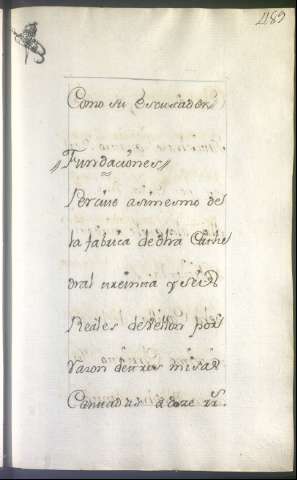 Como su escusador
Fundaciones
Percivo asimesmo de
la fabrica de dha Cathe
dral treinta y seis
Reales de Vellon por
razon de tres misas
Cantadas a doze rs.